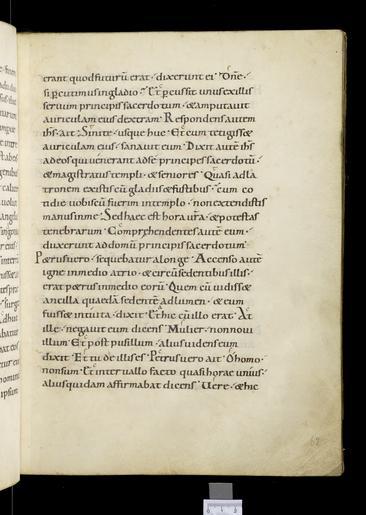 erant quod futurū erat · dixerunt ei · Dn̄e ·
si percutimus in gladio · Et percussit unus ex illis
seruum principis sacerdotum · & amputauit
auriculam eius dexteram · Respondens autem
ih̄s · ait · Sinite · usque huc · Et cum tetigisse
auriculam eius · sanauit eum · Dixit autē ih̄s
ad eos qui uenerant ad se principes sacerdotū ·
& magistratus templi · & seniores · Quasi ad la
tronem existis cū gladiis & fustibus · cum co
tidie uobiscū fuerim in templo · non extendistis
manus in me · Sed haec est hora urā · & potestas
tenebrarum · Comprehendentes autē eum ·
duxerunt ad domū principis sacerdotum ·
Petrus uero · sequebatur a longe · Accenso autē
igne in medio atrio · & circū sedentibus illis ·
erat petrus in medio eorū · Quem cū uidiss&
ancilla quaedā sedentē ad lumen · & eum
fuiss& intuita · dixit · Et hic cū illo erat · At
ille · negauit eum dicens · Mulier · non noui
illum · Et post pusillum · alius uidens eum
dixit · Et tu de illis es · Petrus uero ait · O homo ·
non sum · Et interuallo facto quasi horae unius ·
alius quidam affirmabat dicens · Uere · & hic
62